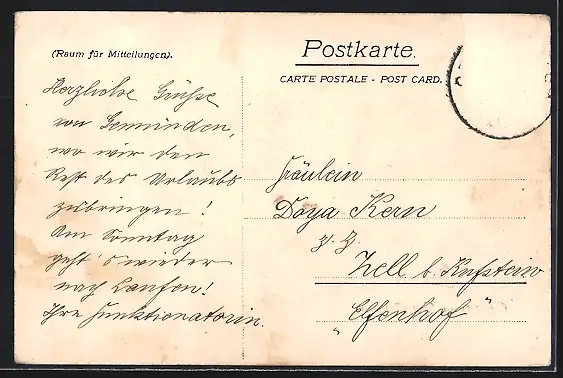 Postkarte.
(Raum für Mitteilungen).
CARTE POSTALE - POST CARD.
Herzliche Grüsse
von Gemünden,
wo wir den
Rest des Urlaubs
zubringen!
Am Sonntag
geht's wieder
nach Laufen!
Ihre Funktionatorin.
Fräulein
Doya Kern
z. Z.
Zell b. Kufstein
"Elfenhof"